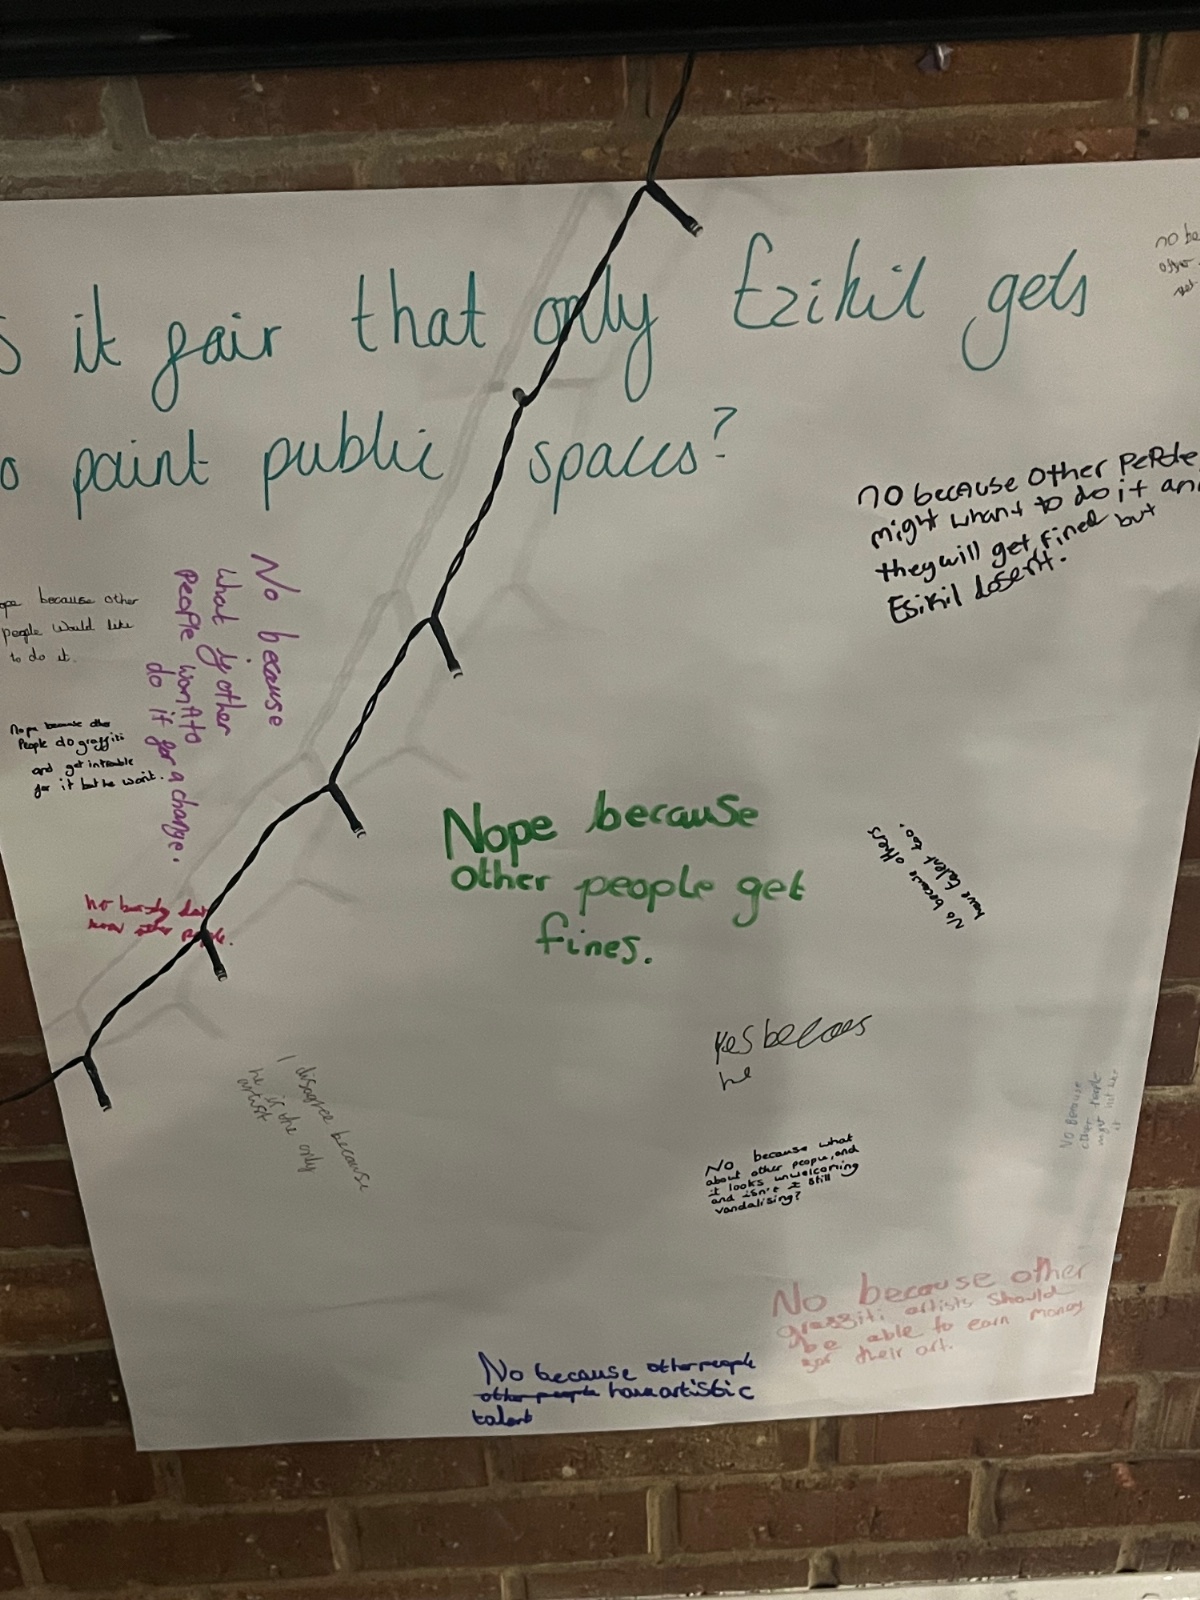 s it fair that only Ezikil gets
o paint public spaces?
no be
other
get
no because other PePole
might whant to do it an
they will get fined but
Esikil dosent.
No because
what if other
people want to
do it for a change.
ope because other
people would like
to do it.
Nope because other
People do graffiti
and get introuble
for it but he wont.
Nope because
other people get
fines.
No because others
have talent too!
no
other
yes becaes
he
I disagree because
he is the only
artist
No because what
about other people, and
it looks unwelcoming
and isn't it still
vandalising?
No Because
other People
it
No because other
graffiti artists should
be able to earn money
for their art.
No because other people
other people have artistic
talent